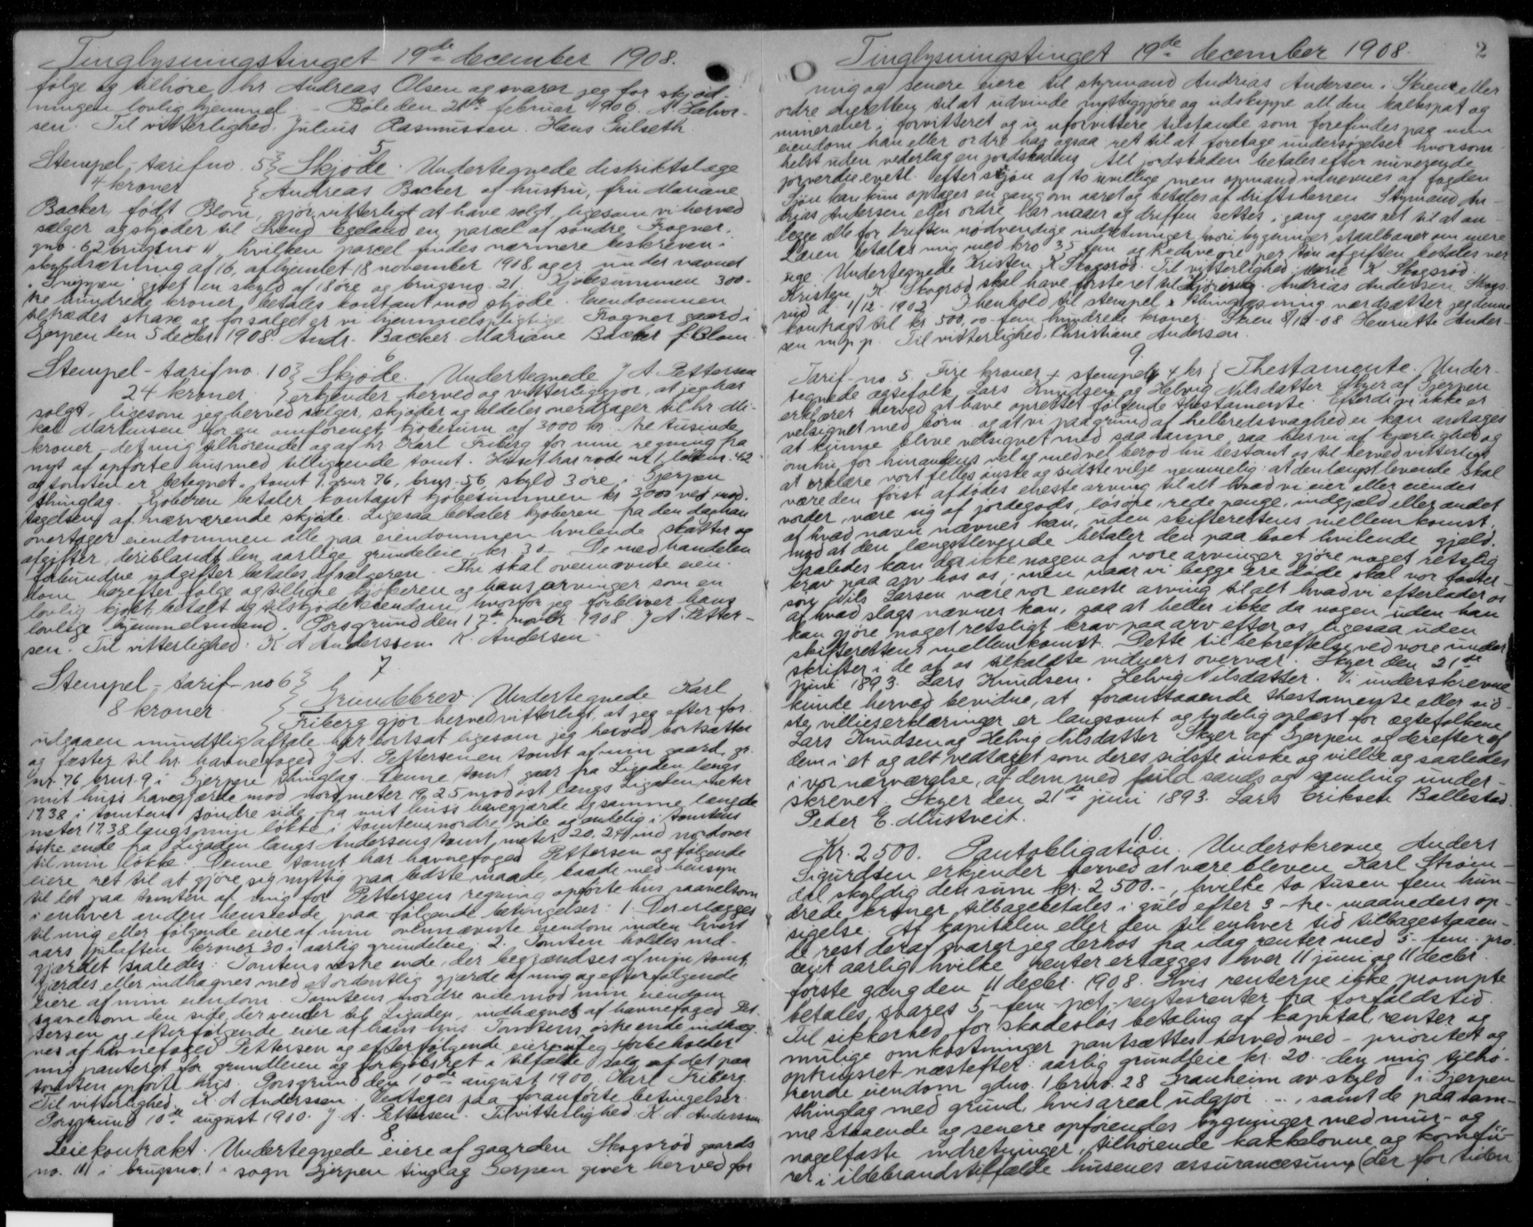 Tinglysningstinget 19de december 1908.
følge og tilhøre hr Andreas Olsen og svarer jeg for skjød-
ningen lovlig hjemmel. Bøle den 21de februar 1906. A Halvor-
sen. Til vitterlighed Julius Rasmussen. Hans Gulseth.
5
Stempel-tarif no. 5 Skjøde. Undertegnede distriktslæge
4 kroner Andreas Backer og hustru, fru Mariane
Backer, født Blom, gjør vitterligt at have solgt, ligesom vi herved
sælger og skjøder til en parcel af søndre Fogner,
gno. 62 brugsno 11, hvilken parcel findes nærmere beskreven i
skylddeling af 16, afhjemlet 18 november 1908, og er under navnet
givet en skyld af 18 øre og brugsno. 21. Kjøbesummen 300-
tre hundrede kroner, betales kontant mod skjøde. Eiendommen
tiltrædes strax og for salget er vi hjemmelspligtige. Fogner gaard i
Gjerpen den 5 decbr 1908. Andr. Backer. Mariane Backer f. Blom.
6
Stempel-tarif no. 10 Skjøde. Undertegnede J A Pettersen
24 kroner. erkjender herved og vitterliggjør, at jeg har
solgt, ligesom jeg herved sælger, skjøder og aldeles overdrager til hr Mi-
kal Martinsen for en omforenet kjøbesum af 3000 kr tre tusinde
kroner det mig tilhørende og af hr. Karl Friberg for min regning fra
nyt af opførte hus med tilliggende tomt. Huset har rode no 1, løbenr. 42
og tomten er betegnet: tomt 1, gnr 76, brgs. 56, skyld 3 øre, i Gjerpen
thinglag. Kjøberen betaler kontant kjøbesummen kr 3000 ved mod-
tagelsen af nærværende skjøde. Ligesaa betaler kjøberen fra den dag han
overtager eiendommen alle paa eiendommen hvilende skatter og
afgifter, deriblandt den aarlige grundleie kr. 30. De med handelen
forbundne udgifter betales af sælgeren. Thi skal ovennævnte eien-
dom herefter følge og tilhøre kjøberen og hans arvinger som en
lovlig kjøbt, betalt og tilskjødet eiendom, hvorfor jeg forbliver hans
lovlige hjemmelsmand. Porsgrund den 17de novbr 1908 J A Petter-
sen. Til vitterlighed. K A Anderssen. K. Andersen.
7
Stempel-tarif-no 6 Grundebrev. Undertegnede Karl
8 kroner Friberg gjør herved vitterligt, at jeg efter for-
udgaaen mundtlig aftale har bortsat ligesom jeg herved bortsætter
og fæster til hr. havnefoged J A. Pettersen en tomt af min gaard, gr.
nr. 76, brnr. 9 i Gjerpen thinglag. Denne tomt gaar fra Ligaden langs
mit huss havegjærde mod nord meter 19,25 mod øst langs Ligaden meter
17.38 i tomtens søndre side, fra mit huss havegjærde og samme længde
meter 17.38 langs min løkke i tomtens nordre side og endelig i tomtens
østre ende fra Ligaden langs Andersens tomt meter 20.24 ind nordover
til min løkke. Denne tomt har havnefoged Pettersen og følgende
eiere ret til at gjøre sig nyttig paa bedste maade, baade med hensyn
til det paa tomten af mig for Pettersens regning opførte hus saavelsom
i enhver anden henseende, paa følgende betingelser: 1. Der erlægges
til mig eller følgende eiere af min ovennævnte eiendom inden hvert
aars kroner 30 i aarlig grundeleie. 2. Tomten holdes ind-
gjærdet saaledes: Tomtens vestre ende, der begrændses af min tomt,
gjærdes eller indhegnes med et ordentlig gjærde af mig og efterfølgende
eiere af min eiendom. Tomtens nordre side mod min eiendom
saavelsom den side, der vender til Ligaden, indhegnes af havnefoged Pet-
tersen og efterfølgende eiere af hans hus. Tomtens østre ende indheg-
nes af havnefoged Pettersen og efterfølgende eiere. Jeg forbeholder
mig panteret for grundleien og forkjøbsret i tilfælde salg af det paa
tomten opførte hus. Porsgrund den 10de august 1900. Karl Friberg.
Til vitterlighed. K A Anderssen. Vedtages paa foranførte betingelser.
Porsgrund 10de august 1910. J A. Pettersen. Til vitterlighed K A Anderssen
8
Leiekontrakt. Undertegnede eiere af gaarden Skogsrød gaards
no. 101 i brugsno. 1 i sogn Gjerpen tinglag Gjerpen giver herved for
Tinglysningstinget 19de december 1908. 2
mig og senere eiere til styrmand Andreas Andersen i Skien eller
ordre eneretten til at udvinde, nyttiggjøre og udskippe all den kalkspat og
mineralier i forvitteret og i uforvittere tilstande, som forefindes paa min
eiendom, han eller ordre har ogsaa ret til at foretage undersøgelser hvorsom-
helst uden vederlag en jordskadens. All jordskaden betales efter nuværende
jordverdie evetl. efter skjøn af to uvillige men opmand udnævnes af fogden.
Skjøn kan kun optages en gang om aaret og betales af driftsherren. Styrmand An-
dreas Andersen eller ordre har naaer og driften settes i gang ogsaa ret til at an-
lægge alle for driften nødvendige indretninger, veie, bygninger, staalbaner om mere
Leien betales mig med kro 35 fem og tredive øre per tøn afgiften betales
Undertegnede Kristen K Skogsrød. Til vitterlighed: Marie K Skogsrød.
Kristen K. Skogrød skal have første ret til kjøring. Andreas Andersen. Skogs-
rud d 1/12. 1902. I henhold til stempel & thinglysning værdsætter jeg denne
kontragt til kr 500,00 fem hundrede kroner. Skien 8/12-08 Henriette Ander-
sen m.p.p. Til vitterlighed: Christiane Andersen.
9.
Tarif-no 5. Fire kroner + stempel 4 kr Thestamente. Under-
tegnede ægtefolk Lars Knudsen og Helvig Nilsdatter Skyer af Gjerpen
erklærer herved at have oprettet følgende thestamente. Efterdi vi ikke er
velsignet med børn og at vi paa grund af helbredssvaghed ei kan antages
at kunne blive velsignet med saadanne, saa have vi af kjærlighed og
omhu for hinandens vel og med vel beraad hu bestemt os til herved vitterligt
at erklære vort fælles ønske og sidste vilje nemmelig: at den længst levende skal
være den først afdødes eneste arving til alt hvad vi eier eller eiendes
vorder, være sig af jordegods, løsøre, rede penge, indgjæld eller andet
af hvad navn nævnes kan, uden skifterettens mellemkomst,
mod at den længstlevende betaler den paa boet hvilende gjæld.
Saaledes kan da ikke nogen af vore arvinger gjøre noget retslig
krav paa arv hos os; men naar vi begge ere døde skal vor foster-
søn Nils Larsen være vor eneste arving til alt hvad vi efterlader os
af hvad slags nævnes kan, saa at heller ikke da nogen uden han
kan gjøre noget retsligt krav paa arv efter os, ligesaa uden
skifterettens mellemkomst. Dette til bekræftelse ved vore under-
skrifter i de af os tilkaldte vidners overvær. Skyer den 21de
juni 1893. Lars Knudsen. Helvig Nilsdatter. Vi underskrevne
kunde herved bevidne, at foranstaaende thestamente eller sid-
ste villieserklæringer er langsomt og tydelig oplæst for ægtefolkene
Lars Knudsen og Helvig Nilsdatter Skyer af Gjerpen og derefter af
dem i et og alt vedtaget som deres sidste ønske og villie og saaledes
i vor nærværelse, af dem med fuld sands og samling under-
skrevet. Skyer den 21de juni 1893. Lars Eriksen Ballestad.
Peder E. Mustveit.
10.
Kr. 2500. Pantobligation. Underskrevne Anders
Sigurdsen erkjender herved at være bleven Karl Strøm-
dal skyldig den sum kr. 2500.-, hvilke to tusen fem hun-
drede kroner tilbagebetales i guld efter 3 - tre - maaneders op-
sigelse. Af kapitalen eller den til enhver tid tilbagestaaen-
de rest deraf svarer jeg derhos fra idag renter med 5 - fem - pro-
cent aarlig hvilke renter erlægges hver 11 juni og 11 decbr.
første gang den 11 decbr. 1908. Hvis renterne ikke prompte
betales, svares 5 - fem - pct. rentesrenter fra forfaldstid.
Til sikkerhed for skadesløs betaling af kapital, renter og
mulige omkostninger pantsættes herved med prioritet og
optrinsret næstefter: aarlig grundleie kr. 20.- den mig tilhø-
rende eiendom gdno. 1 brno. 28 Granheim av skyld i Gjerpen
thinglag med grund, hvis areal udgjør -, samt de paa sam-
me staaende og senere opførendes bygninger med mur- og
nagelfaste indretninger, tilhørende kakkelovne og komfü-
rer i ildebrandstilfælde husenes assurancesum (der for tiden